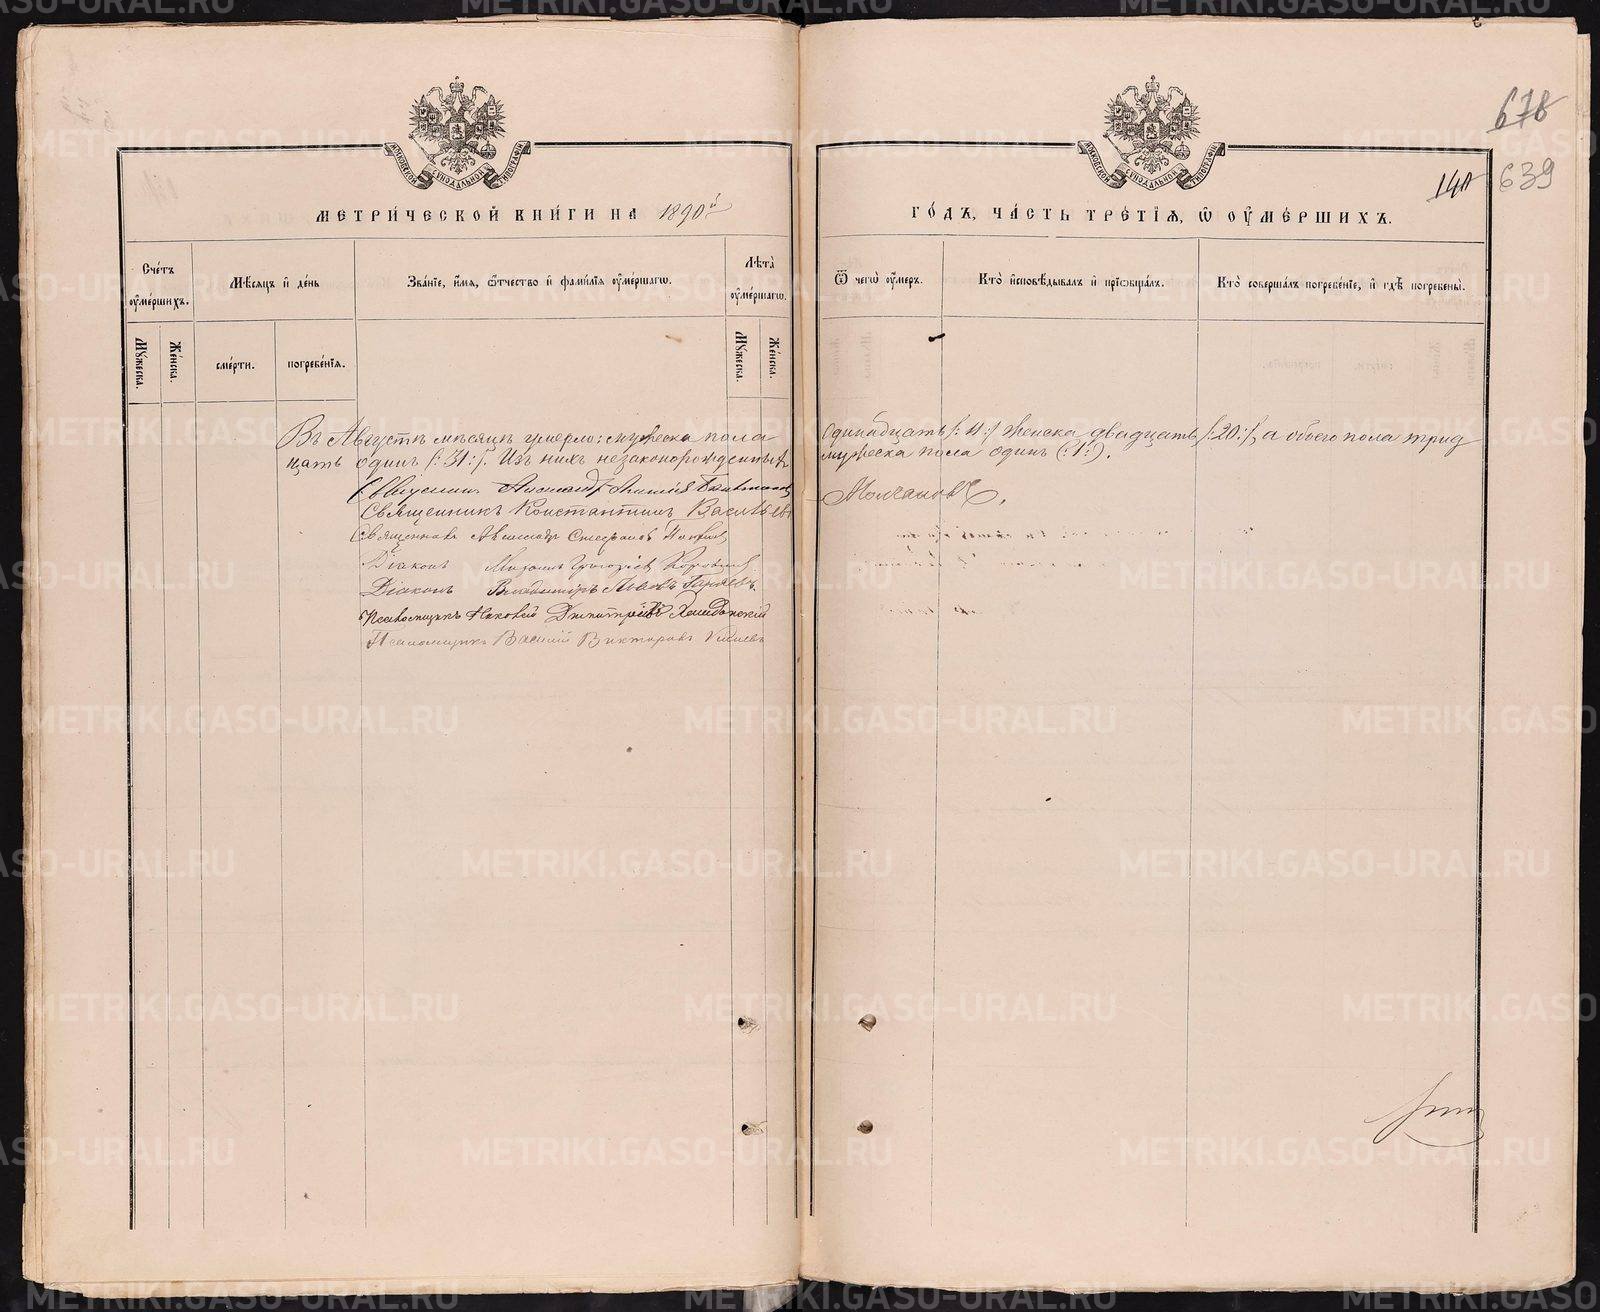 678
140 639
МЕТРИЧЕСКОЙ КНИГИ НА 1890й ГОДЪ, ЧАСТЬ ТРЕТІЯ, Ѿ ОУМЕРШИХЪ.
Счетъ оумершихъ.
Мѣсяцъ и день
Званіе, имя, ѿтчество и фамилія оумершагѡ.
Лѣта оумершагѡ.
Ѿ чегѡ оумеръ.
Кто исповѣдывалъ и пріѡбщалъ.
Кто совершалъ погребеніе, и гдѣ погребены.
Мужеска.
Женска.
смерти.
погребенія.
Мужеска.
Женска.
Въ Августѣ мѣсяцѣ умерло: мужеска пола одиннадцать /:11:/ женска двадцать /:20:/, а обоего пола трид
цать одинъ /:31:/. Изъ нихъ незаконорожденныхъ мужеска пола одинъ (:1:).
Священникъ Александръ
Священникъ Константинъ Васильевъ Молчановъ.
Священникъ Александръ Стефановъ
Діаконъ Михаилъ Григорьевъ
Діаконъ Владиміръ Львовъ
Псаломщикъ Димитріевъ
Псаломщикъ Василій Викторовъ
METRIKI.GASO-URAL.RU